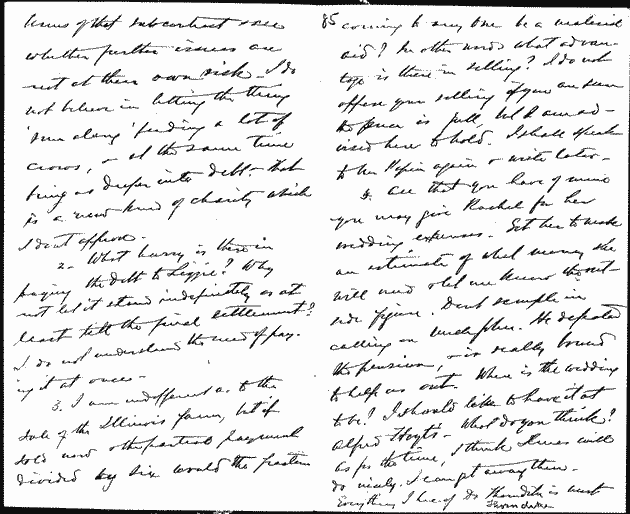 terms of that subcontract see
whether further issues are
not at their own risk. I do
not believe in letting the thing
'run along' feeding a lot of
crows, & at the same time
being as deeper into debt - that
is a new kind of charity which
I don't approve.
2. What hurry is there in
paying the debt to Lizzie? Why
not let it stand indefinitely or at
least till the final settlement?
I do not understand the need of pay-
ing it at once -
3. I am indifferent as to the
sale of the Illinois farm, but if
sold now & the partial payment
divided by six would the fraction
85
coming to any one be a material
aid? In other words what advan-
tage is there in selling? I do not
oppose your selling if you are sure
the price is full, but I am ad-
vised here to hold. I shall speak
to again & write later -
5. All that you have of mine
you may give Rachel for her
wedding expenses. Get her to make
an estimate of what money she
will need & let me know the out-
side figure. Don't scruple in
calling on He defeated
the pension, & is really bound
to help us out. Where is the wedding
to be? I should like to have it at
Alfred Hoyt's. What do you think?
As for the time, I think will
do nicely. I can get away then.
Everything I hear of is most